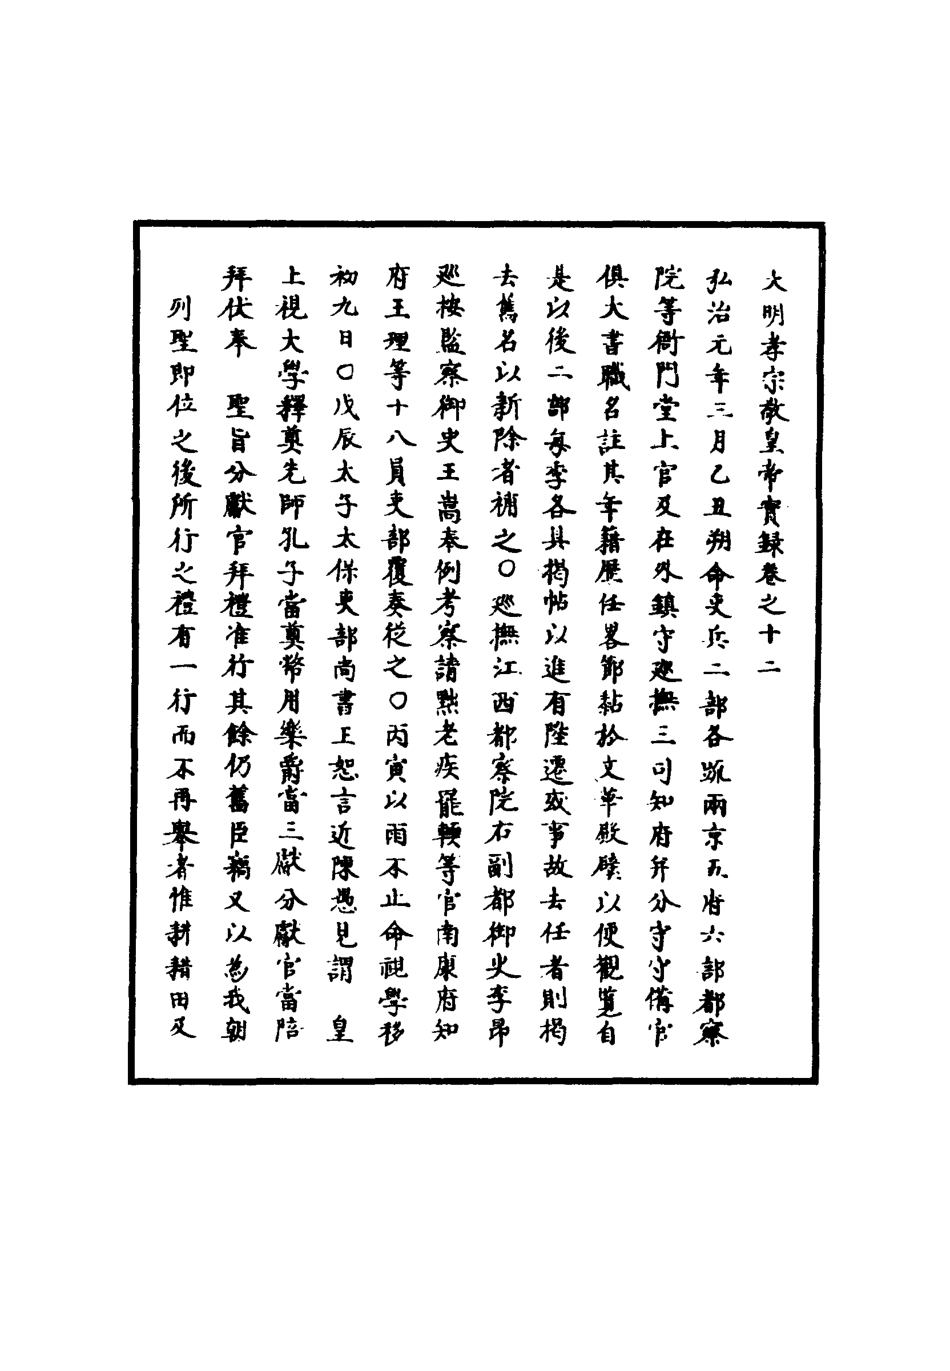 大明孝宗敬皇帝實録卷之十二
弘治元年三月乙丑朔命吏兵二部各疏兩京五府六部都察
院等衙門堂上官及在外鎮守廵撫三司知府并分守守備官
俱大書職名註其年籍歷任畧節黏於文華殿壁以便觀覽自
是以後二部每季各具揭帖以進有陞遷或事故去任者則揭
去舊名以新除者補之○廵撫江西都察院右副都御史李昂
廵按監察御史王嵩奉例考察請黜老疾罷輭等官南康府知
府王理等十八員吏部覆奏從之○丙寅以雨不止命視學移
初九日○戊辰太子太保吏部尚書王恕言近陳愚見謂　皇
上視大學釋奠先師孔子當奠幣用樂爵當三獻分獻官當陪
拜伏奉　聖旨分獻官拜禮准行其餘仍舊臣竊又以為我朝
列聖即位之後所行之禮有一行而不再舉者惟耕耤田及